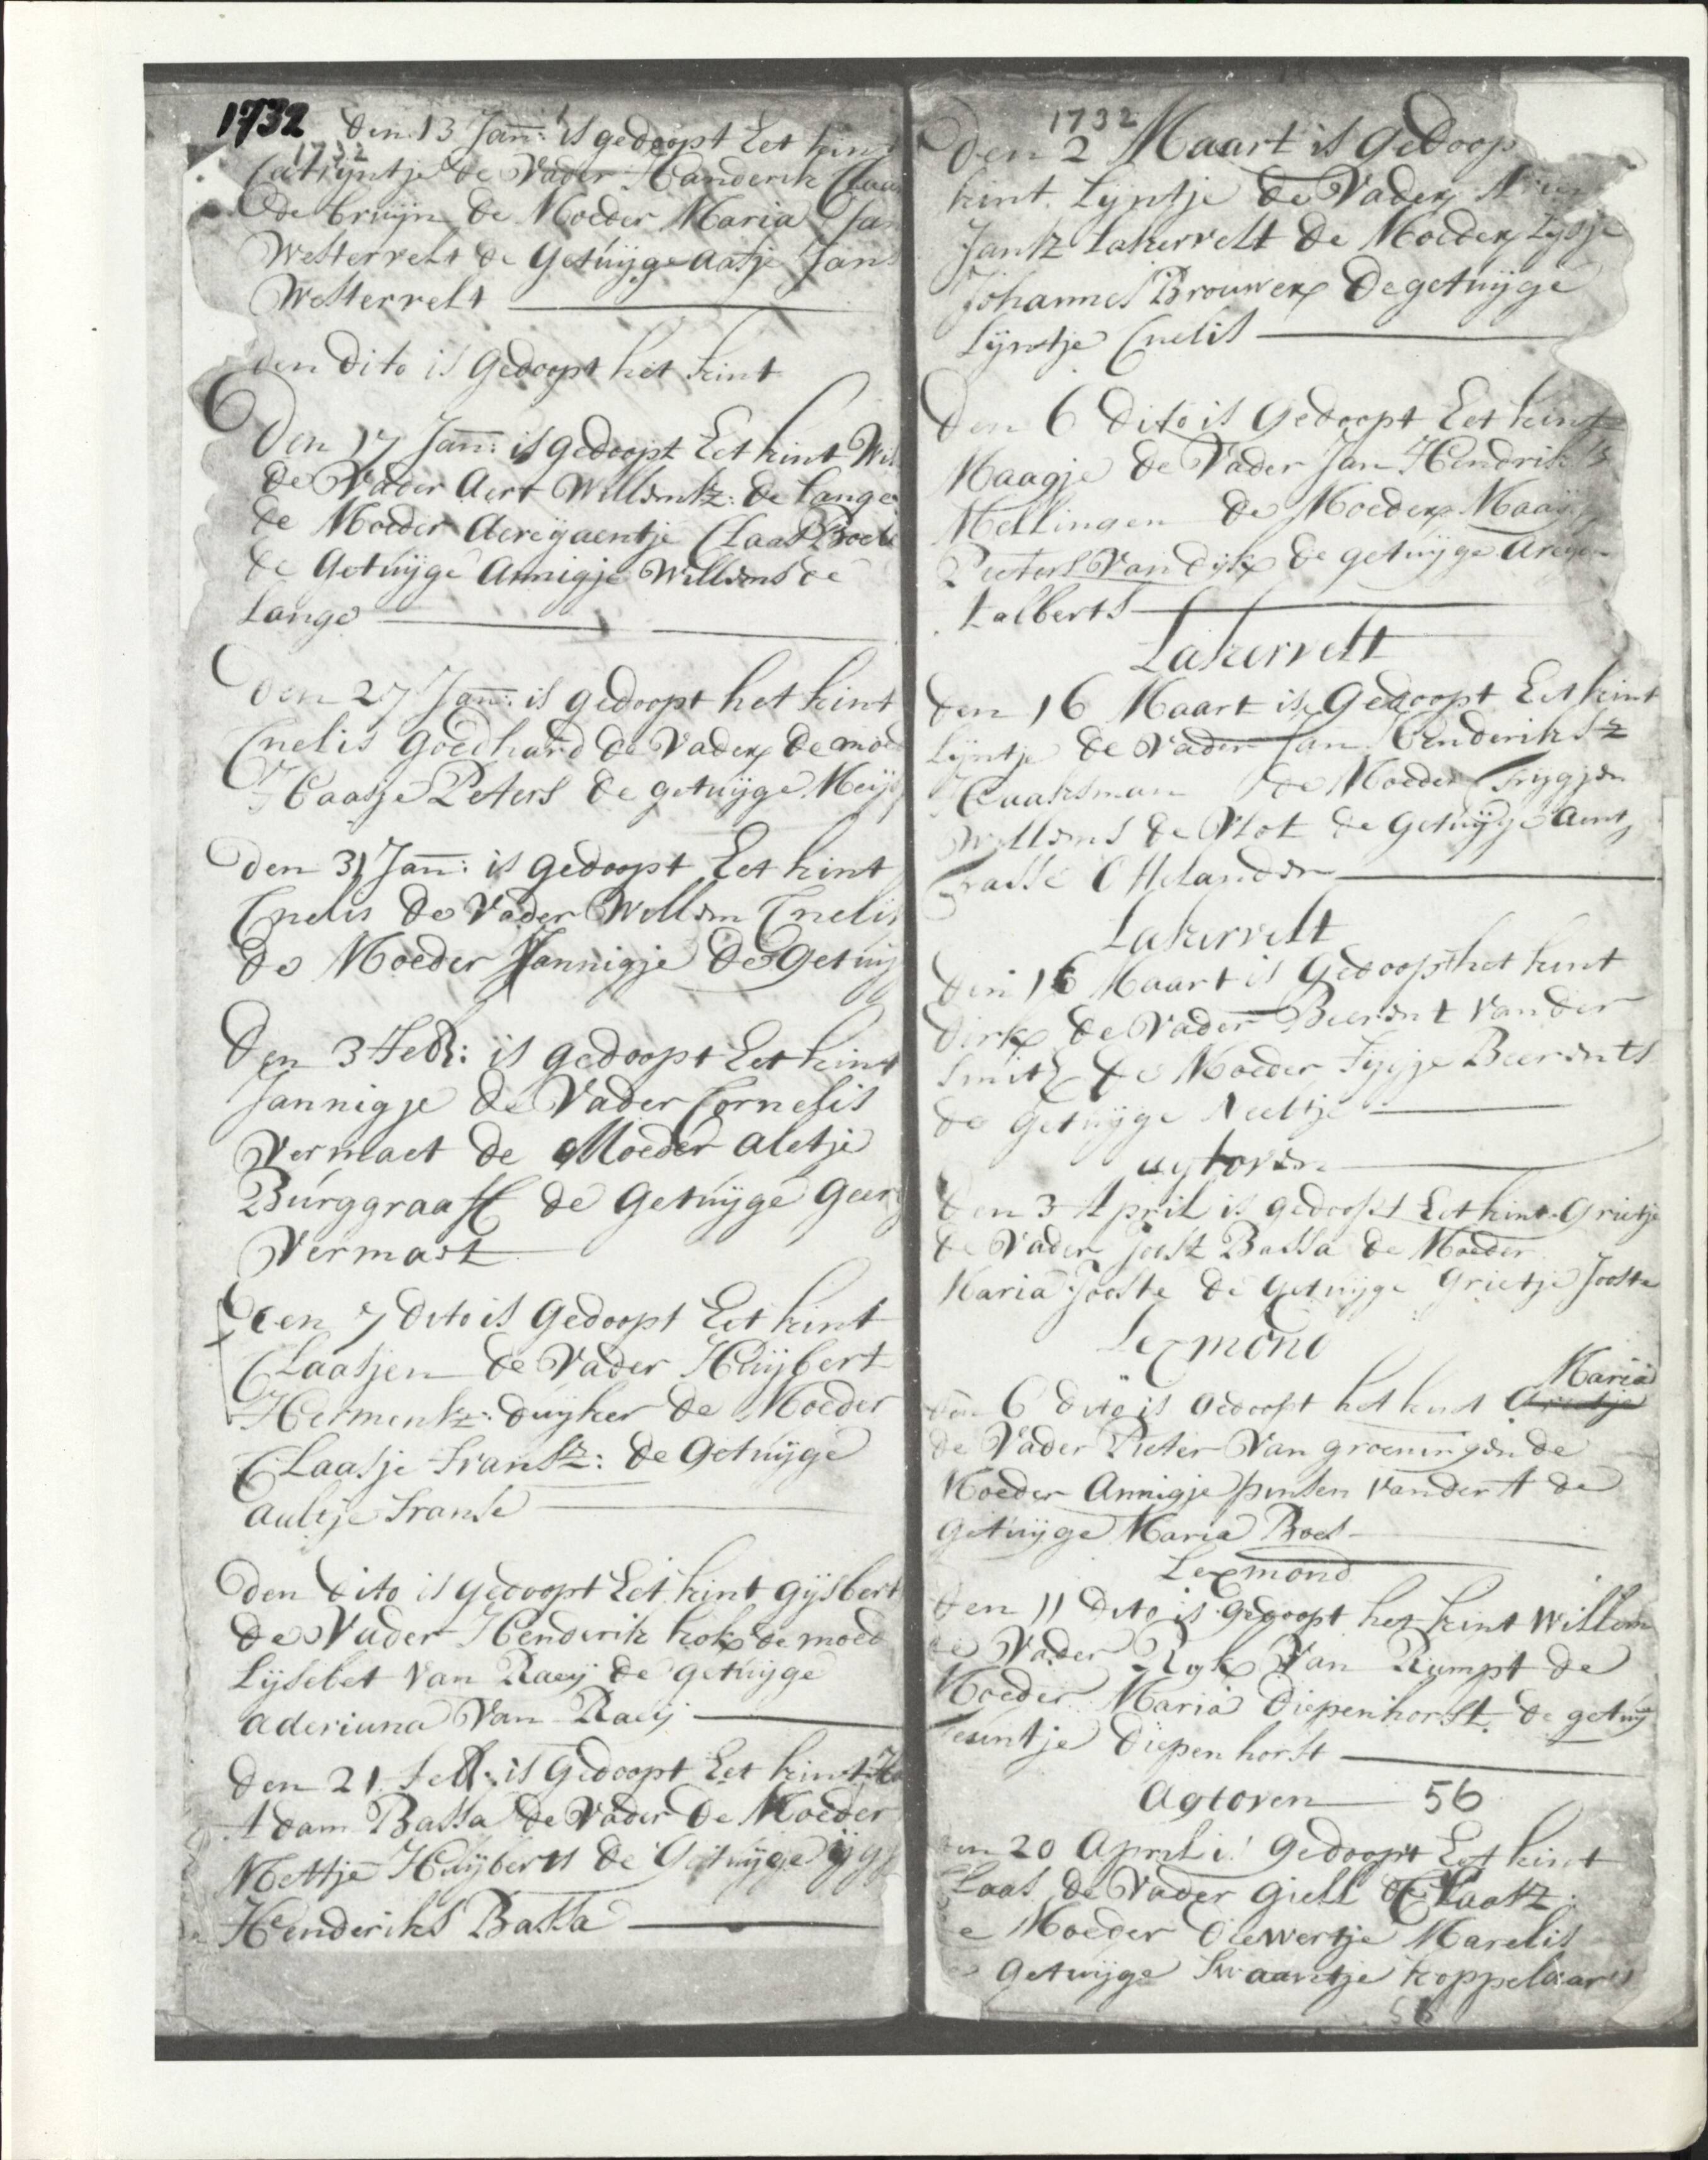 1732
Den 13 Jan: is gedoopt Eet kin
1732
Catrijntje de Vader Handerik Claa
de bruijn de Moeder Maria Jan
Westervelt de Getuijge aatje Jans
Westervelt
den dito is Gedoopt het kint
Den 17 Jan: is gedoopt Eet kint Wil
de Vader Aert Willemtz: de Lange
de Moeder Aereyaentje Claas
de Getuijge Annigje Willems de
Lange
Den 27 Jan: is gedoopt het kint
Cnelis Goedhard de Vader de moed
Haasje Peters de getuijge
Den 31 Jan: is gedoopt Eet kint
Cnelis de Vader Willem Cnelis
de Moeder Jannigje de Getuij
Den 3 Feb: is gedoopt Eet kint
Jannigje de Vader Cornelis
Vermaet de Moeder aletje
Burggraaff de Getuijge Geer
Vermast
Den 7 dito is Gedoopt Eet kint
Claasjen de Vader Huijbert
Hermentz: duyker de Moeder
Claasje Fransz: de Getuijge
Franse
Den dito is gedoopt Eet kint gijsbert
de Vader Henderik kok de moed
Lijsebet Van Raeij de getuijge
aderiana Van Raeij
Den 21 Feb: is Gedoopt Eet kint
Adam Bassa de Vader de Moeder
Mettje Huijberts de Getuijge
Henderiks Bassa
1732
Den 2 Maart is Gedoop
kint Lijntje de Vader
Jantz Lakervelt de Moeder Lijsje
Johannes Brouwer de getuijge
Lijntje Cnelis
Den 6 dito is Gedoopt Eet kint
Maagje de Vader Jan Hendrik
Mellingen de Moeder
Pieters Van dijk de getuijge
Lalberts
Lakervelt
Den 16 Maart is Gedoopt Eet kint
Lijntje de Vader Jan Henderiksz
Quaksman de Moeder
Willems de Vlot de Getuijge

Lakervelt
Den 16 Maart is Gedoopt het kint
Dirk de Vader Beerent Van der
Smitz de Moeder Beerents
de Getuijge Neeltje

Den 3 April is gedoopt Eet kint Grietje
de Vader Joost Bassa de Moeder
Maria Jooste de Getuijge Grietje Jooste
Lexmond
Maria
den 6 dito is Gedoopt het kint
de Vader Pieter Van groeningen de
Moeder Annigje Van der A de
Getuijge Maria Boes
Lexmond
Den 11 dito is Gedoopt het kint Willem
de Vader Ryk Van Rumpt de
Moeder Maria Diepenhorst de getuij
Teuntje Diepenhorst
Agtoven 56
den 20 April is Gedoopt Eet kint
Claas de Vader Giell Claasz:
de Moeder Diewertje Marelis
Getuijge Swaantje koppelaars
56